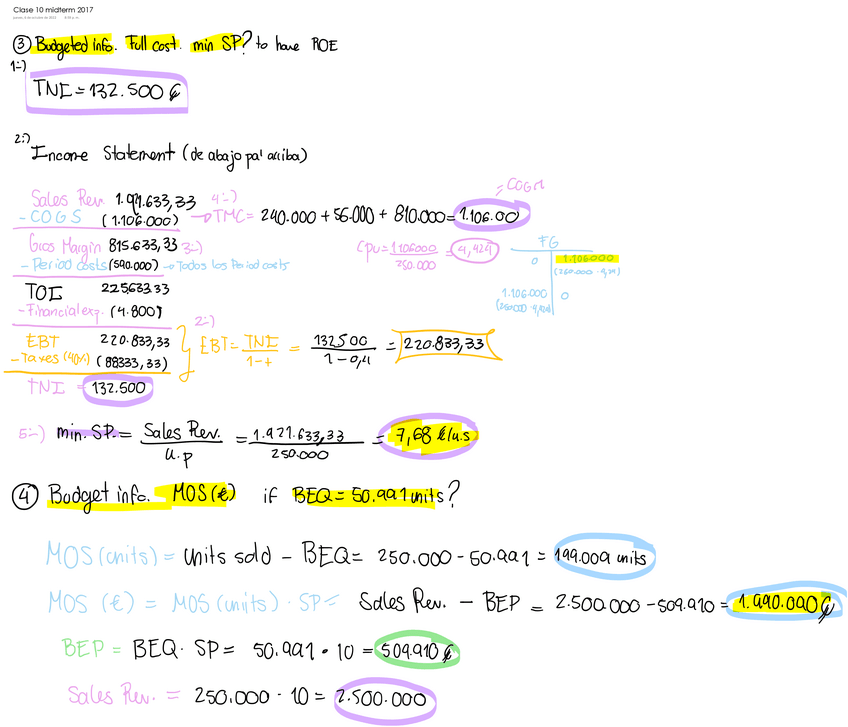 Clase 10 midterm 2017
③ Budgeted info. Full cost. min SP? to have ROE
1:-)
TNI = 132.500 €
2:-)
Income Statement (de abajo pa' arriba)
Sales Rev. 1.921.633,33 4:-) = COGM
- COGS (1.106.000) → TMC = 240.000 + 56.000 + 810.000 = 1.106.00
Gros Margin 815.633,33 3:-) Cpu = 1106000 / 250.000 = 4,424 FG
- Period costs (590.000) → Todos los Period costs 0 1.106.000
(250.000 · 4,424)
TOI 225.633.33 1.106.000 0
- Financial exp. (4.800) (250.000 · 4,424)
2:-)
EBT 220.833,33 EBT = TNI / 1-t = 132.500 / 1-0,4 = 220.833,33
- Taxes (40%) (88333,33)
TNI = 132.500
5:-) min. SP. = Sales Rev. / u.p = 1.921.633,33 / 250.000 = 7,68 €/u.s
④ Budget info. MOS (€) if BEQ = 50.991 units?
MOS (units) = units sold - BEQ = 250.000 - 50.991 = 199.009 units
MOS (€) = MOS (units) · SP = Sales Rev. - BEP = 2.500.000 - 509.910 = 1.990.090 €
BEP = BEQ · SP = 50.991 · 10 = 509.910 €
Sales Rev. = 250.000 · 10 = 2.500.000